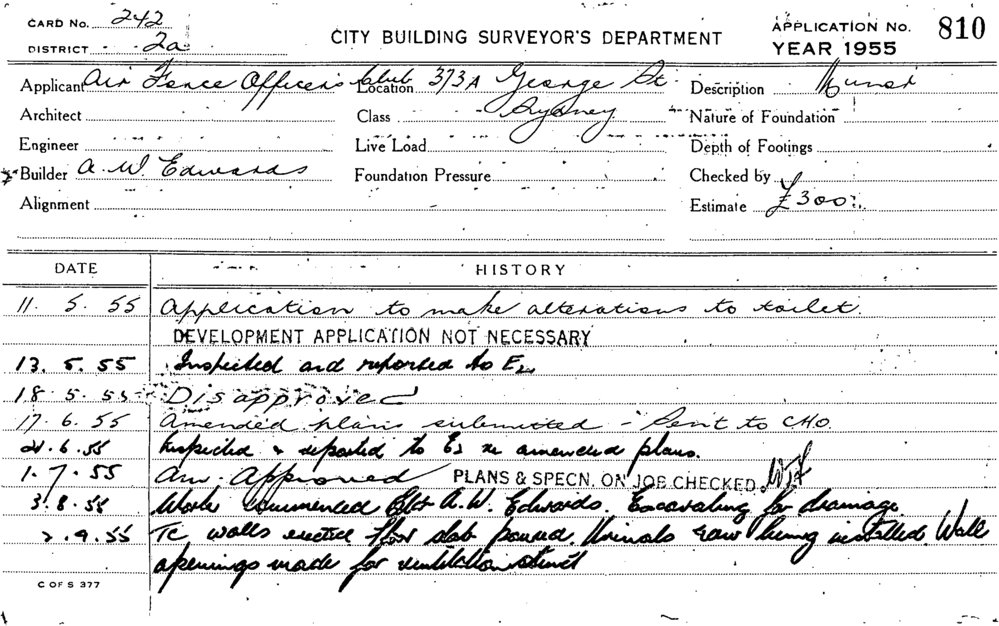 CARD No. 242
DISTRICT 2a
CITY BUILDING SURVEYOR'S DEPARTMENT
APPLICATION No. 810
YEAR 1955
Applicant Air Force Officers Club Location 373A George St Sydney Description Minor
Architect Class Nature of Foundation
Engineer Live Load Depth of Footings
Builder A. W. Edwards Foundation Pressure Checked by
Alignment Estimate £300
DATE HISTORY
11. 5. 55 Application to make alterations to toilet.
DEVELOPMENT APPLICATION NOT NECESSARY
13. 5. 55 Inspected and reported to
18. 5. 55 Disapproved
17. 6. 55 Amended plans submitted - Sent to CHO.
21. 6. 55 Inspected & reported to re amended plans.
1. 7. 55 Am. Approved PLANS & SPECN. ON JOB CHECKED.
3. 8. 55 Work commenced Bldr A. W. Edwards. Excavating for drainage
2. 9. 55 TC walls erected floor slab poured Urinals being installed. Wall
openings made for ventilation
C OF S 377